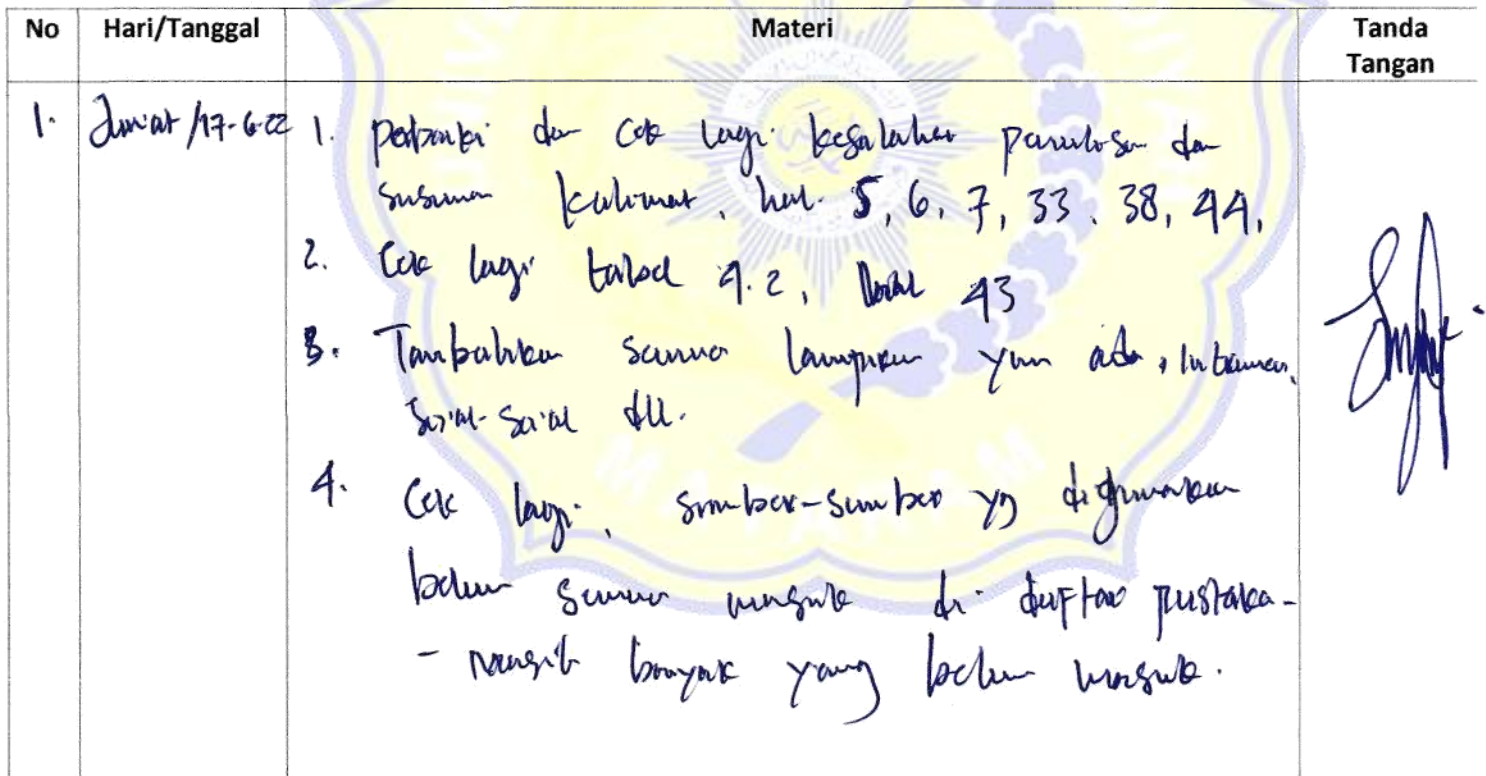 No Hari/Tanggal Materi Tanda Tangan
1. Jum'at /17-6-22 1. perbaiki dan Cek lagi kesalahan penulisan dan
susunan kalimat, hal. 5, 6, 7, 33, 38, 44,
2. Cek lagi tabel 4.2, 43
3. Tambahkan semua lampiran yan ada,
dll.
4. Cek lagi, sumber-sumber yg digunakan
belum semua masuk di daftar pustaka-
- masih banyak yang belum masuk.
UNIV
MATARAM